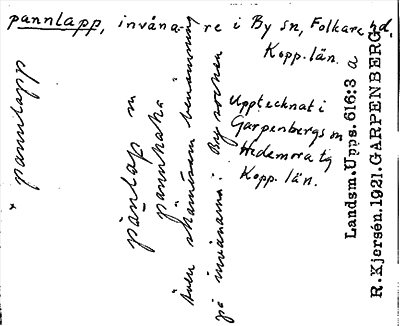 pannlapp, invånare i By sn, Folkare hd,
Kopp. län.
Upptecknat i
Garpenbergs sn
Hedemora tg
Kopp. län.
* pannlapp
panlap m
pannkaka
även skämtsam benämning
på invånarna i By socken
Landsm. Upps. 616:3 a
R. Kjersén. 1921. GARPENBERG